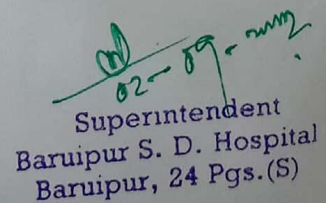 Superintendent
Baruipur S. D. Hospital
Baruipur, 24 Pgs.(S)